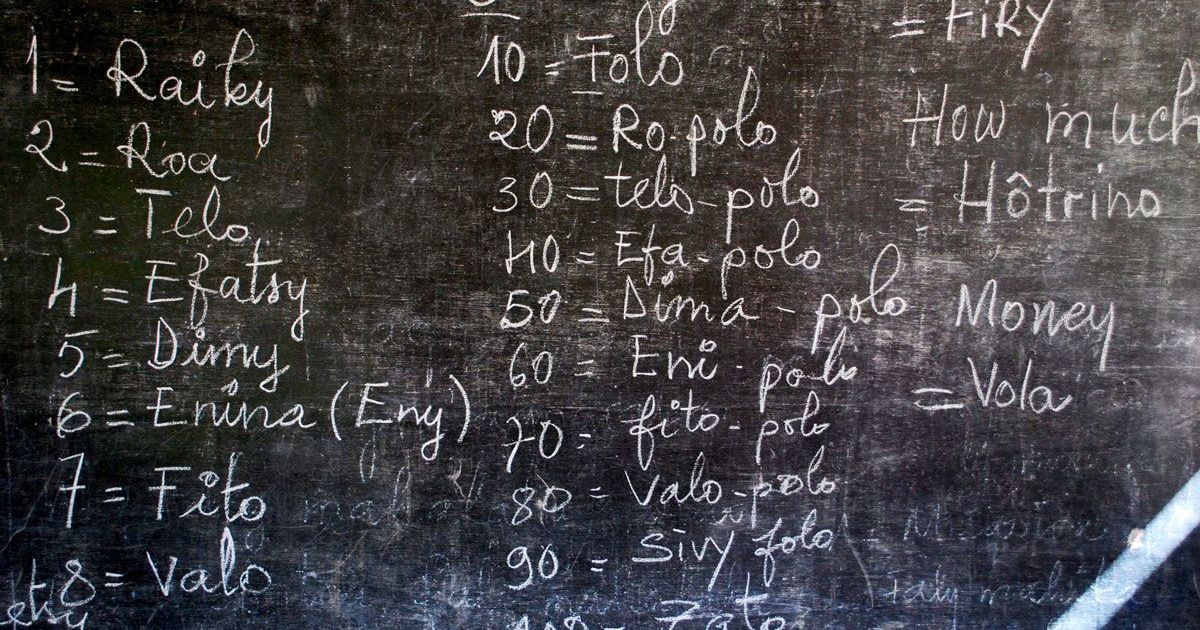 1 = Raiky
2 = Roa
3 = Telo
4 = Efatsy
5 = Dimy
6 = Enina (Eny)
7 = Fito
8 = Valo
etsy
10 = Folo
20 = Ro-polo
30 = telo-polo
40 = Efa-polo
50 = Dima-polo
60 = Eni-polo
70 = fito-polo
80 = Valo-polo
90 = Sivy folo
100 = Zato
= FiRY
How much
= Hôtrino
Money
= Vola